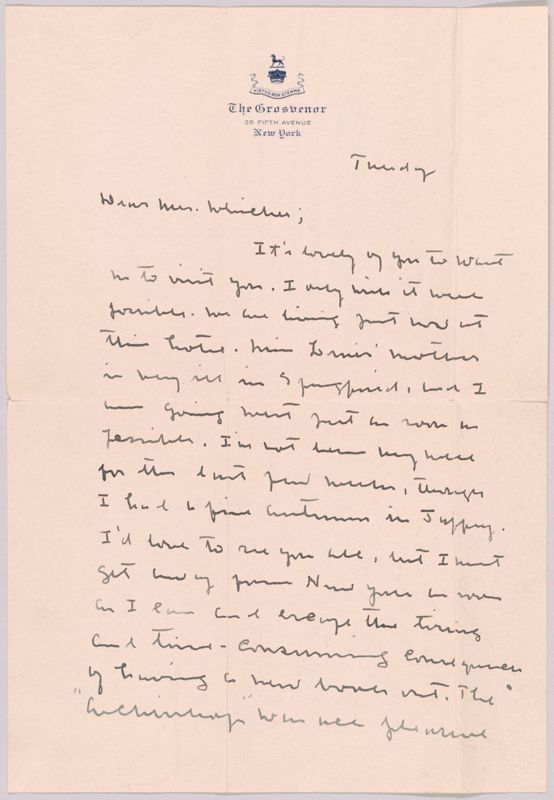 VIRTUS NON STEMMA
The Grosvenor
35 FIFTH AVENUE
New York
Tuesday
Dear Mrs. Whicher;
It's lovely of you to want
me to visit you. I only wish it were
possible. We are living just now at
this hotel. Miss Lewis' mother
is very ill in Springfield, and I
am going west just as soon as
possible. I've not been very well
for the last few weeks, though
I had a fine autumn in Jaffrey.
I'd love to see you all, but I must
get away from New York as soon
as I can and escape the tiring
and time-consuming consequences
of having a new book out. The
"Archbishop" was all pleasure